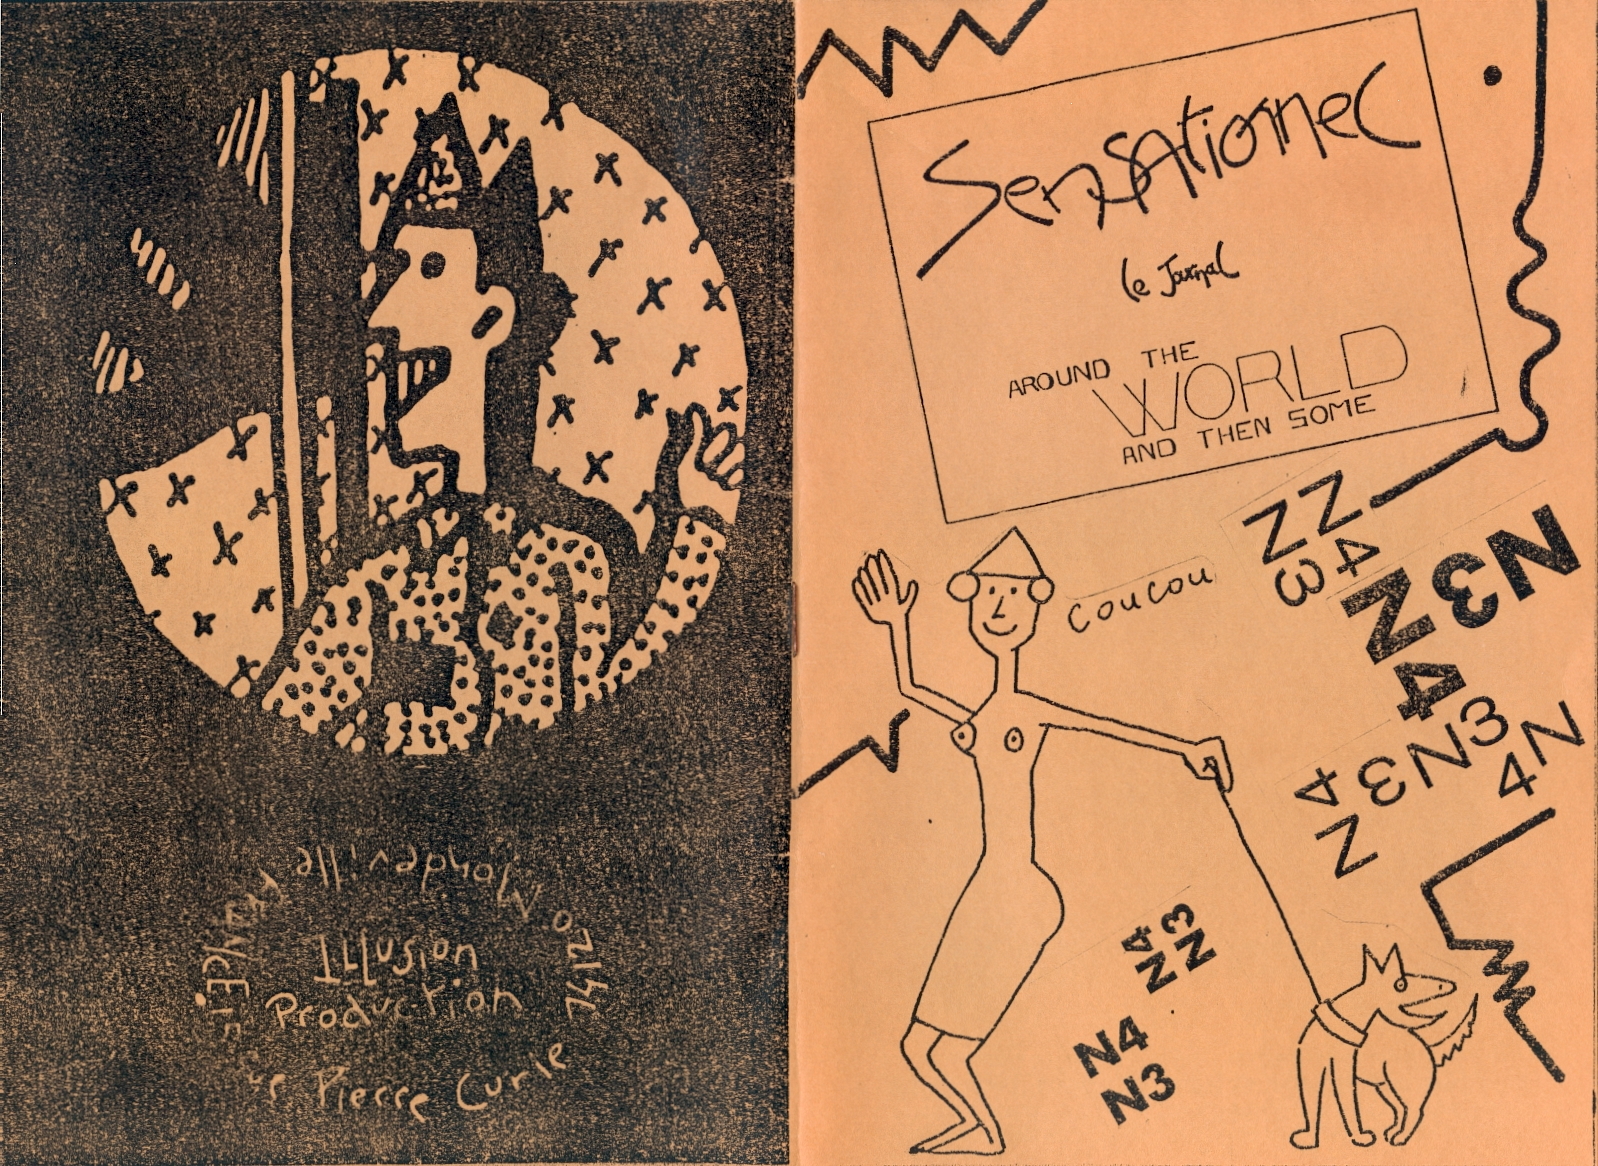 Illusion
Production
Pierre Curie
14120 Mondeville
Sensationnel
le Journal
AROUND THE
WORLD
AND THEN SOME
coucou
N4
N3
N3
N4
N3
N3
N4
N4
N4
N3
N4
N3